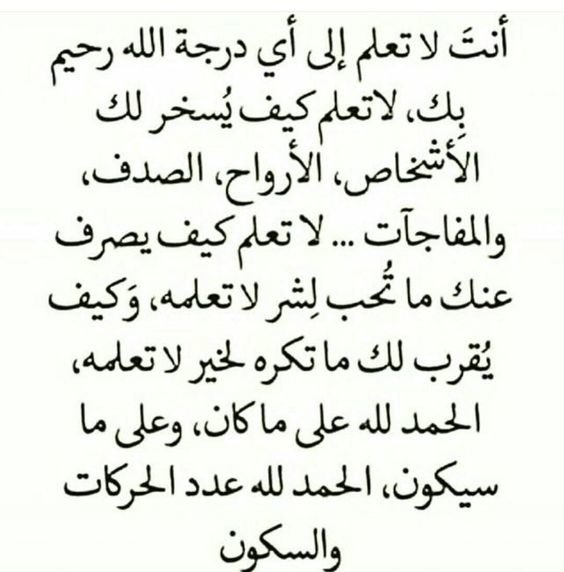 أنتَ لا تعلم إلى أي درجة الله رحيم
بِك، لاتعلم كيف يُسخر لك
الأشْخاص، الأرواح، الصدف،
والمفاجآت ... لا تعلم كيف يصرف
عنك ما تُحب لِشر لا تعلمه، وَكيف
يُقرب لك ما تكره لخير لا تعلمه،
الحمد لله على ما كان، وعلى ما
سيكون، الحمد لله عدد الحركات
والسكون